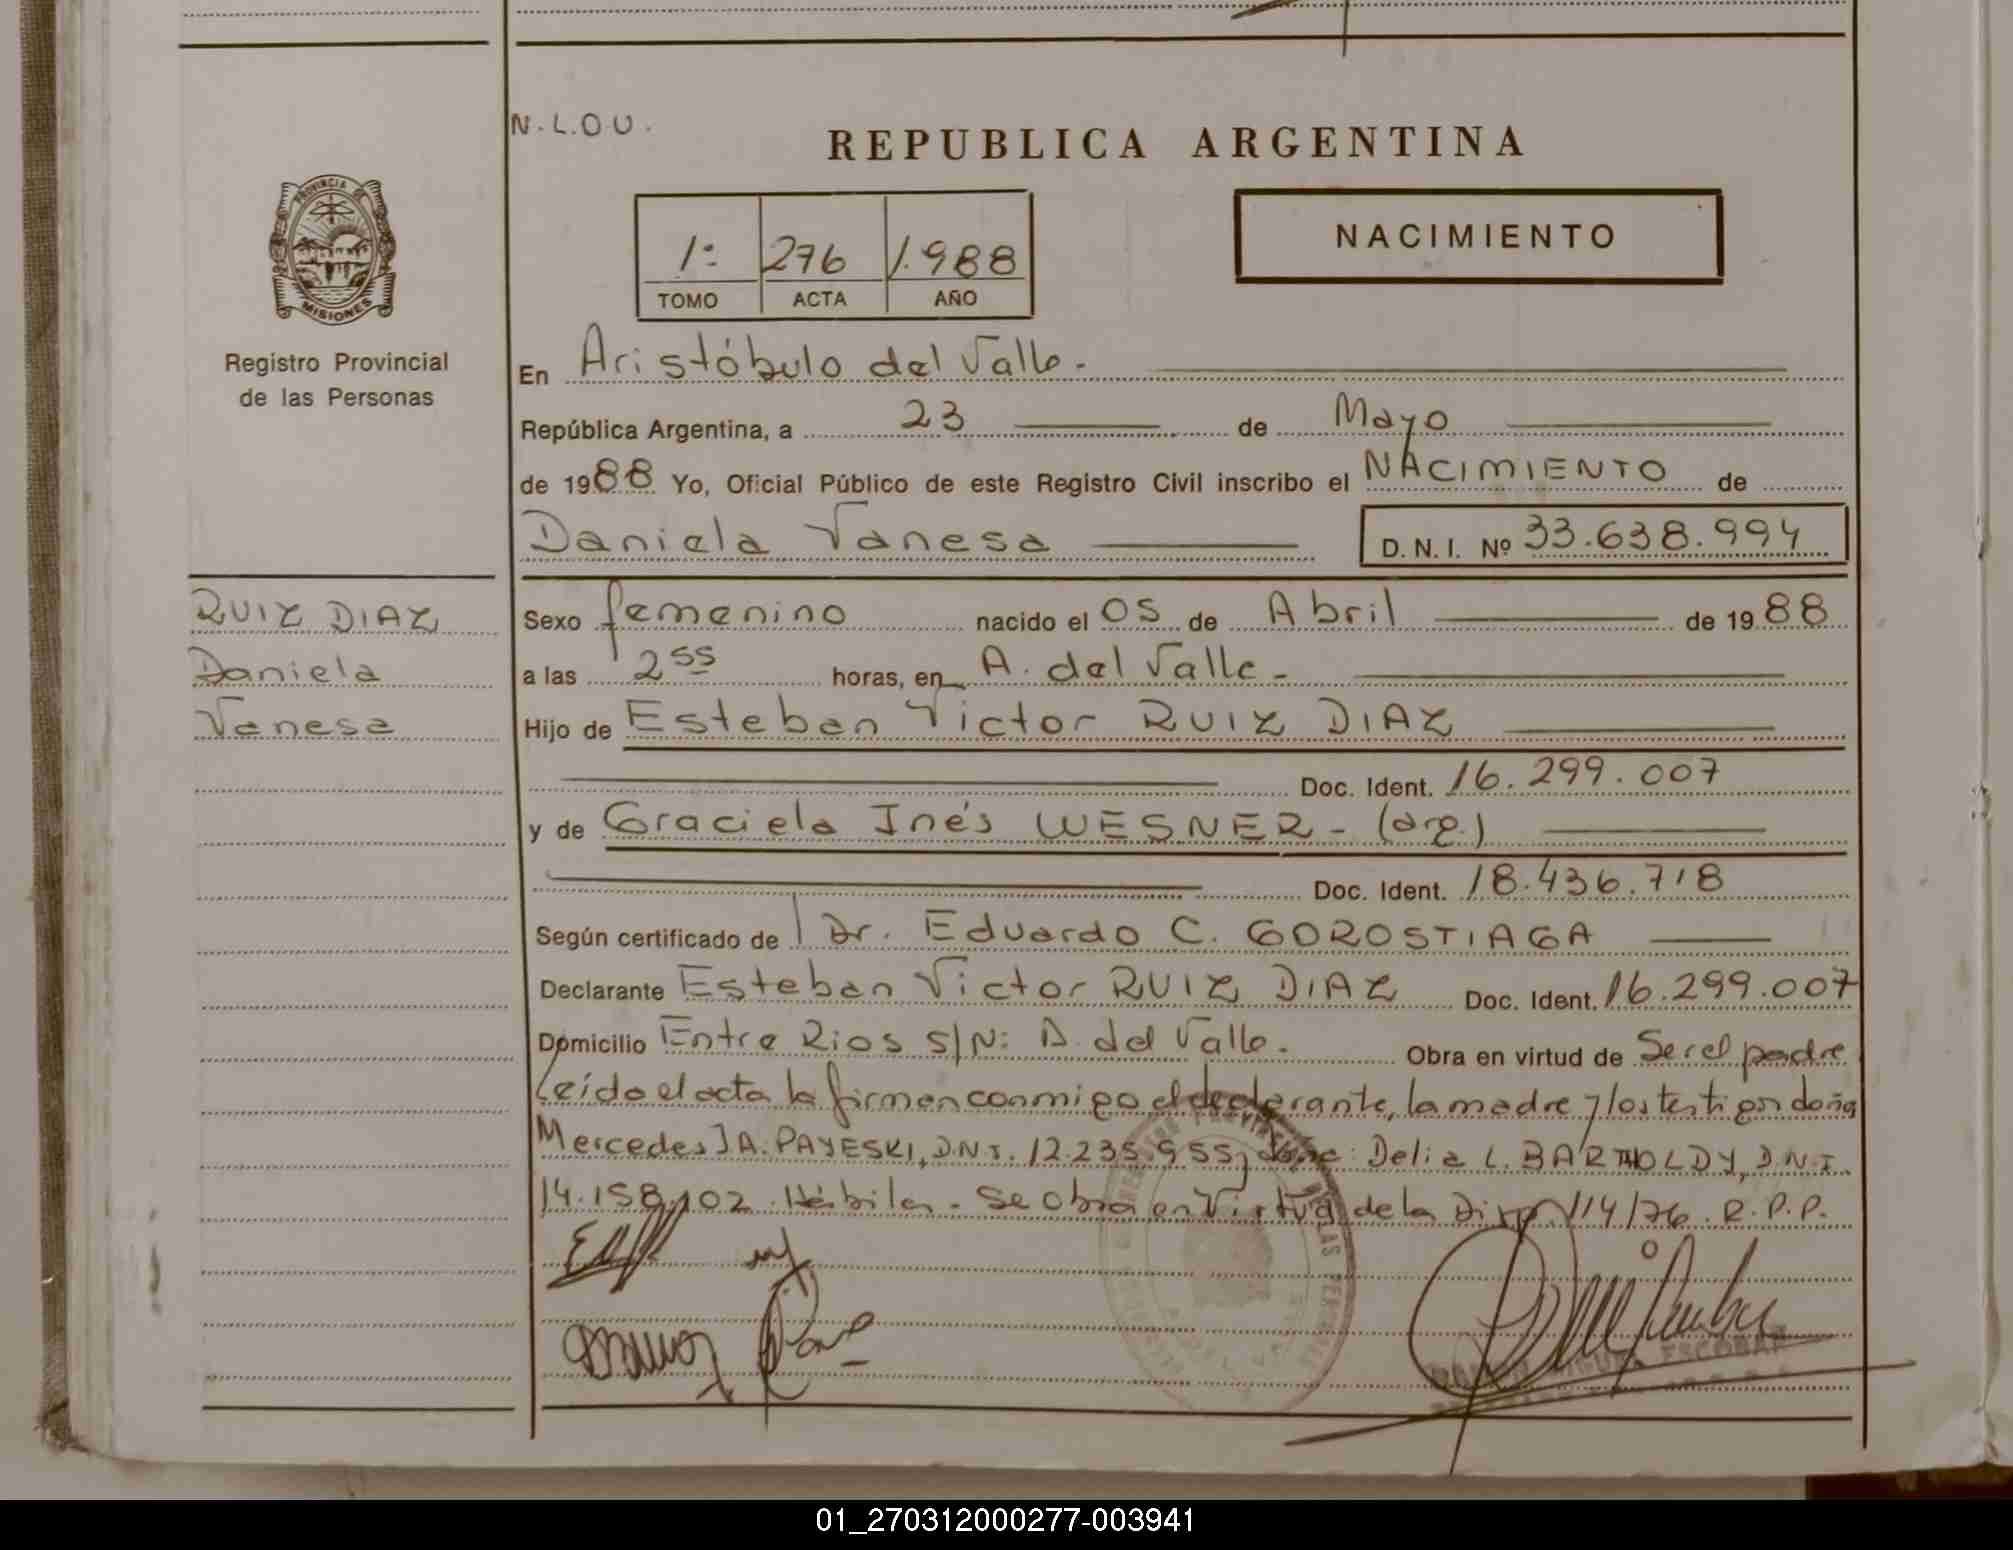 N.L.O.U.
REPUBLICA ARGENTINA
PROVINCIA DE
MISIONES
Registro Provincial
de las Personas
1º 276 1.988
TOMO ACTA AÑO
NACIMIENTO
En Aristóbulo del Valle.
República Argentina, a 23 de Mayo
de 1988 Yo, Oficial Público de este Registro Civil inscribo el NACIMIENTO de
Daniela Vanesa D.N.I. Nº 33.638.994
RUIZ DIAZ
Daniela
Vanesa
Sexo femenino nacido el 05 de Abril de 1988
a las 2 55 horas, en A. del Valle.
Hijo de Esteban Victor RUIZ DIAZ
Doc. Ident. 16.299.007
y de Graciela Inés WESNER - (arg.)
Doc. Ident. 18.436.718
Según certificado de Dr. Eduardo C. GOROSTIAGA
Declarante Esteban Victor RUIZ DIAZ Doc. Ident. 16.299.007
Domicilio Entre Rios S/Nº A. del Valle. Obra en virtud de Ser el padre
Leído el acta la firman conmigo el declarante, la madre y los testigos doña
Mercedes J A. PAYESKI, D.N.I. 12.235.955 y doña Delia L. BARTHOLDY, D.N.I.
14.158.102 Hábiles - Se obra en Virtud de la Disp. 114/76. R.P.P.
ESCOBAR
01_270312000277-003941